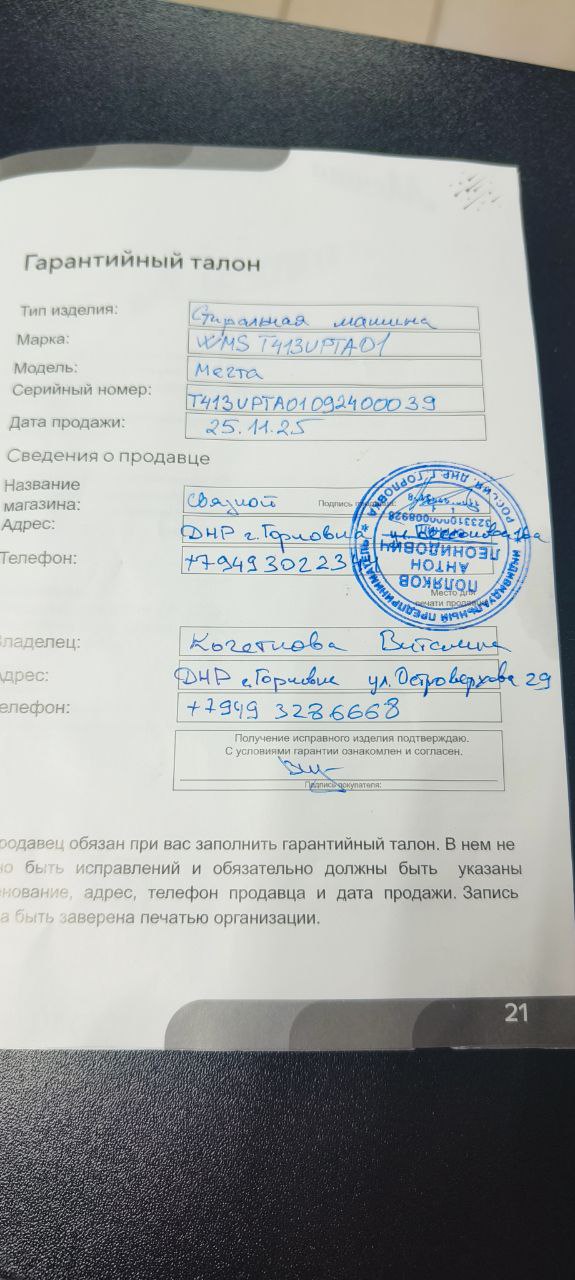 Гарантийный талон
Тип изделия: Стиральная машина
Марка: WMS T413UPTA01
Модель: Мечта
Серийный номер: T413UPTA01092400039
Дата продажи: 25.11.25
Сведения о продавце
Название
магазина: Связной Подпись
Адрес: ДНР г. Горловка ул.
Телефон: +7949302234
Место для
печати продавца
ИНДИВИДУАЛЬНЫЙ ПРЕДПРИНИМАТЕЛЬ
РОССИЯ, ДНР, Г. ГОРЛОВКА
ПОЛЯКОВ
АНТОН
ЛЕОНИДОВИЧ
ладелец: Виталина
дрес: ДНР г. Горловка ул. Островерхова 29
елефон: +7949 3286668
Получение исправного изделия подтверждаю.
С условиями гарантии ознакомлен и согласен.
Подпись покупателя:
родавец обязан при вас заполнить гарантийный талон. В нем не
но быть исправлений и обязательно должны быть указаны
енование, адрес, телефон продавца и дата продажи. Запись
а быть заверена печатью организации.
21